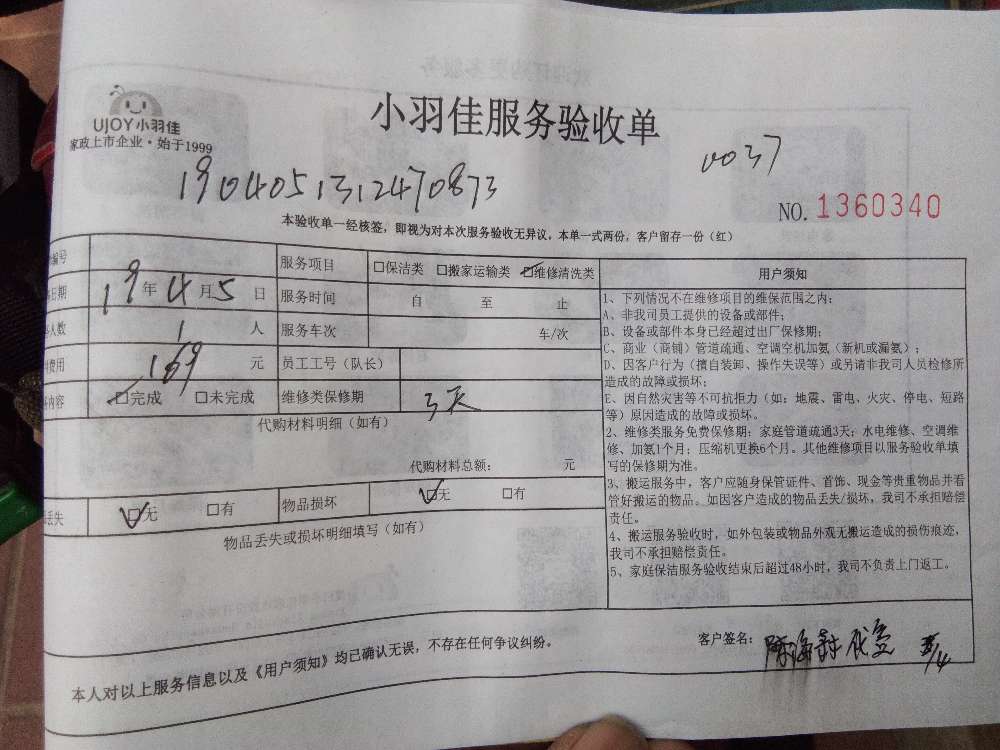 小羽佳服务验收单
UJOY小羽佳
家政上市企业·始于1999
0037
1904051312470873
NO. 1360340
本验收单一经核签，即视为对本次服务验收无异议，本单一式两份，客户留存一份（红）
编号
服务项目 □保洁类 □搬家运输类 ☑维修清洗类
日期 19年4月5日 服务时间 自 至 止
人数 1 人 服务车次 车/次
费用 169 元 员工工号（队长）
内容 ☑完成 □未完成 维修类保修期 3天
代购材料明细（如有）
代购材料总额： 元
丢失 ☑无 □有 物品损坏 ☑无 □有
物品丢失或损坏明细填写（如有）
用户须知
1、下列情况不在维修项目的维保范围之内：
A、非我司员工提供的设备或部件；
B、设备或部件本身已经超过出厂保修期；
C、商业（商铺）管道疏通、空调空机加氨（新机或漏氨）；
D、因客户行为（擅自装卸、操作失误等）或另请非我司人员检修所
造成的故障或损坏；
E、因自然灾害等不可抗拒力（如：地震、雷电、火灾、停电、短路
等）原因造成的故障或损坏。
2、维修类服务免费保修期：家庭管道疏通3天；水电维修、空调维
修、加氨1个月；压缩机更换6个月。其他维修项目以服务验收单填
写的保修期为准。
3、搬运服务中，客户应随身保管证件、首饰、现金等贵重物品并看
管好搬运的物品。如因客户造成的物品丢失/损坏，我司不承担赔偿
责任。
4、搬运服务验收时，如外包装或物品外观无搬运造成的损伤痕迹，
我司不承担赔偿责任。
5、家庭保洁服务验收结束后超过48小时，我司不负责上门返工。
本人对以上服务信息以及《用户须知》均已确认无误，不存在任何争议纠纷。
客户签名：